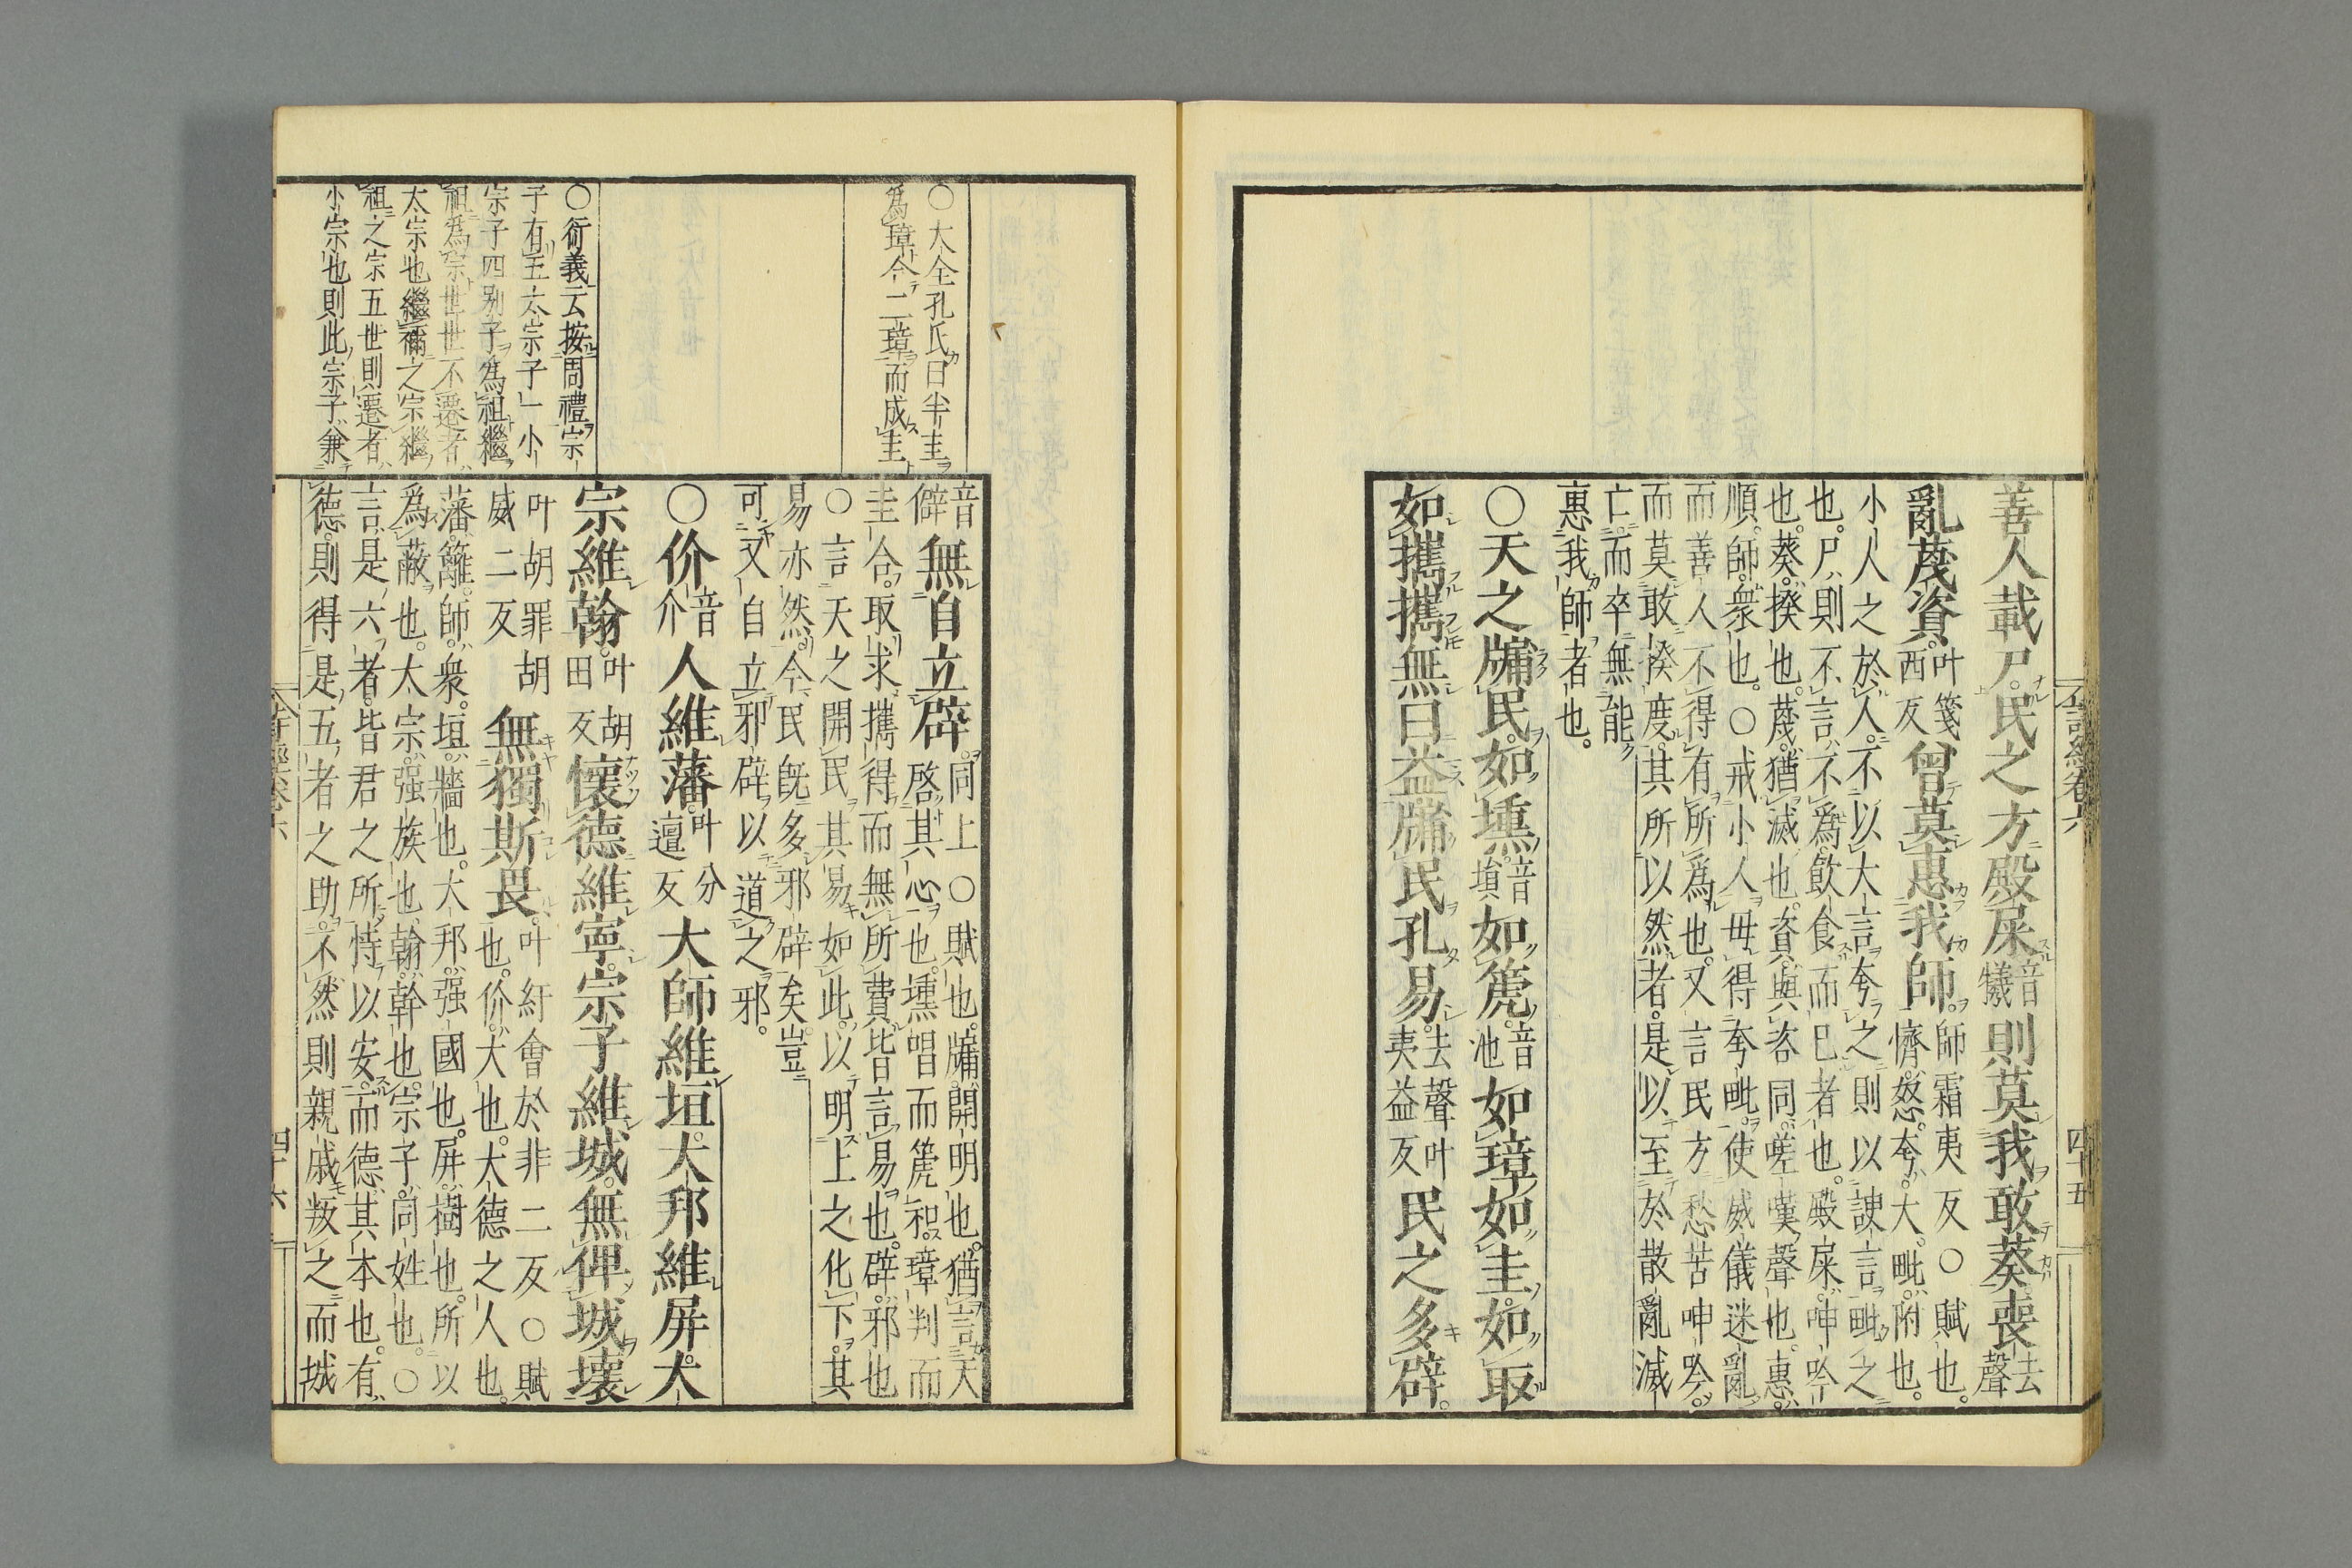 詩經卷六
四十五
善人載尸民之方殿屎音犧則莫我敢葵喪去聲
亂蔑資叶箋西反曾莫惠我師師霜夷反○賦也
懠怒夸大毗附也
小人之於人不以大言夸之則以諛言毗之
也尸則不言不爲飲食而已者也殿屎呻吟
也葵揆也蔑猶滅也資與咨同嗟嘆聲也惠
順師衆也○戒小人毋得夸毗使威儀迷亂
而善人不得有所爲也又言民方愁苦呻吟
而莫敢揆度其所以然者是以至於散亂滅
亡而卒無能
惠我師者也
○天之牖民如壎音塤如篪音池如璋如圭如取
如攜攜無曰益牖民孔易去聲叶夷益反民之多辟
○大全孔氏曰半圭
爲璋合二璋而成圭
音僻無自立辟同上○賦也牖開明也猶言天
啓其心也壎唱而篪和璋判而
圭合取求攜得而無所費皆言易也辟邪也
○言天之開民其易如此以明上之化下其
易亦然今民旣多邪辟矣豈
可又自立邪辟以道之邪
○价音介人維藩叶分邅反大師維垣大邦維屏大
宗維翰叶胡田反懷德維寧宗子維城無俾城壞
叶胡罪胡威二反無獨斯畏叶紆會於非二反○賦
也价大也大德之人也
藩籬師衆垣牆也大邦强國也屏樹也所以
爲蔽也大宗强族也翰幹也宗子同姓也○
言是六者皆君之所恃以安而德其本也有
德則得是五者之助不然則親戚叛之而城
○衍義云按周禮宗
子有五大宗子一小
宗子四別子爲祖繼
祖爲宗世世不遷者
大宗也繼禰之宗繼
祖之宗五世則遷者
小宗也則此宗子兼
四十六